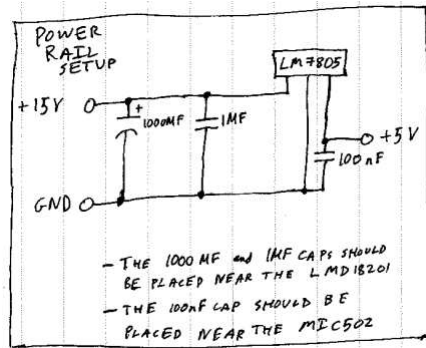 POWER
RAIL
SETUP
LM7805
+15V
+
1000MF
1MF
+5V
100nF
GND
- THE 1000MF and 1MF CAPS SHOULD
BE PLACED NEAR THE LMD18201
- THE 100nF CAP SHOULD BE
PLACED NEAR THE MIC502